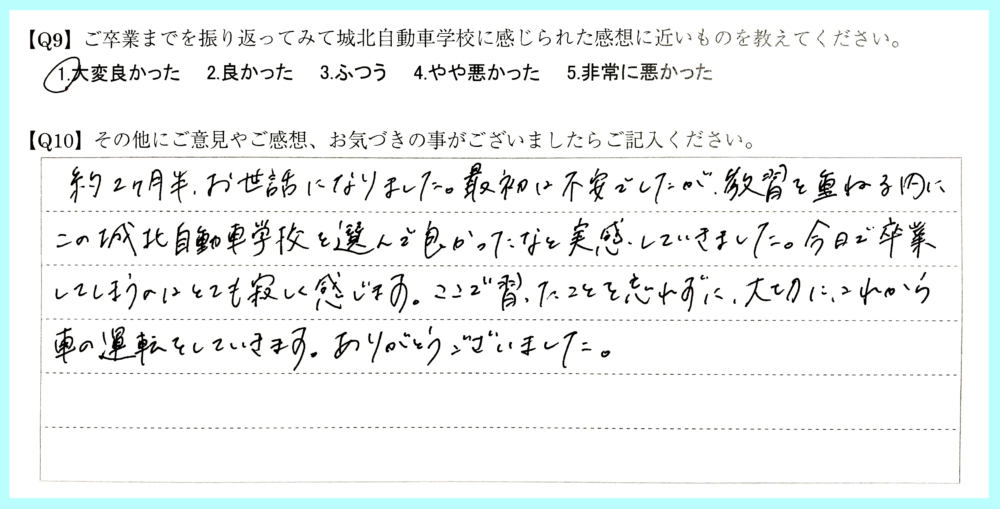 【Q9】ご卒業までを振り返ってみて城北自動車学校に感じられた感想に近いものを教えてください。
1.大変良かった 2.良かった 3.ふつう 4.やや悪かった 5.非常に悪かった
【Q10】その他にご意見やご感想、お気づきの事がございましたらご記入ください。
約2ヶ月半、お世話になりました。最初は不安でしたが、教習を重ねる内に
この城北自動車学校を選んで良かったなと実感していきました。今日で卒業
してしまうのはとても寂しく感じます。ここで習ったことを忘れずに、大切に、これから
車の運転をしていきます。ありがとうございました。